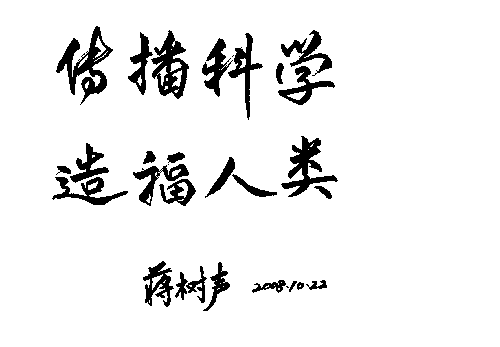 传播科学
造福人类
蒋树声 2008.10.22